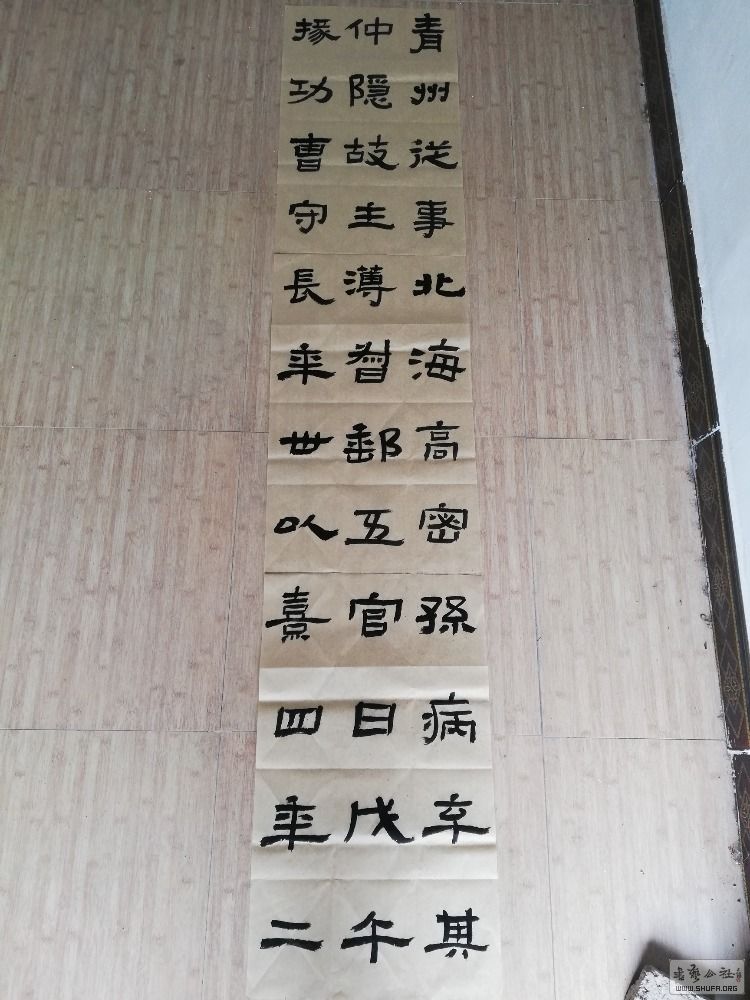 青州從事北海高密孫病卒其
仲隱故主薄督郵五官日戊午
掾功曹守長年卅以熹四年二
书艺公社
WWW.SHUFA.ORG